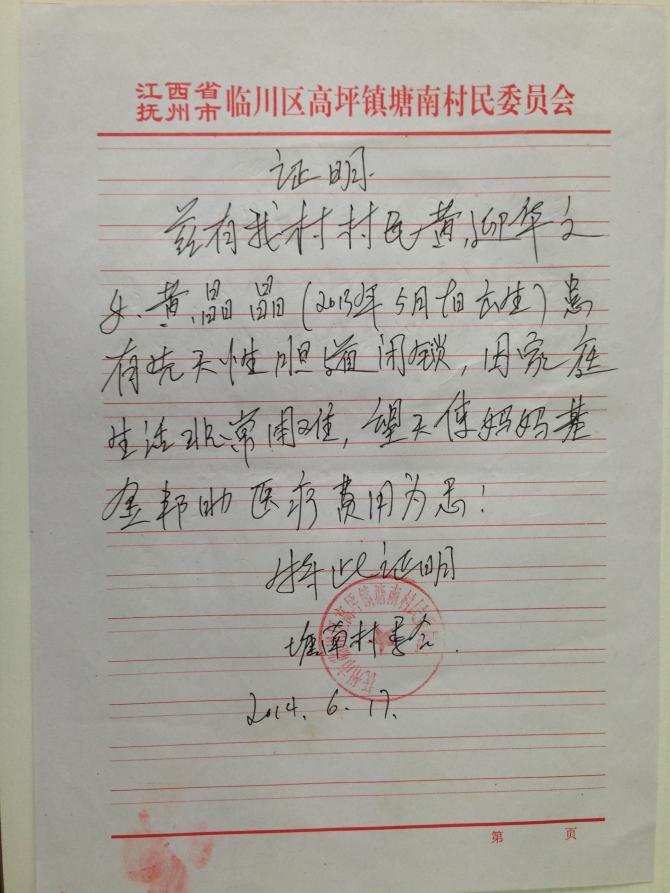 江西省
抚州市 临川区高坪镇塘南村民委员会
证明.
兹有我村村民黄迎华之
女.黄晶晶(2013年5月十日出生)患
有先天性胆道闭锁,因家庭
生活非常困难,望天使妈妈基
金邦助医疗费用为盼!
特此证明
塘南村委会.
2014.6.17.
第 页